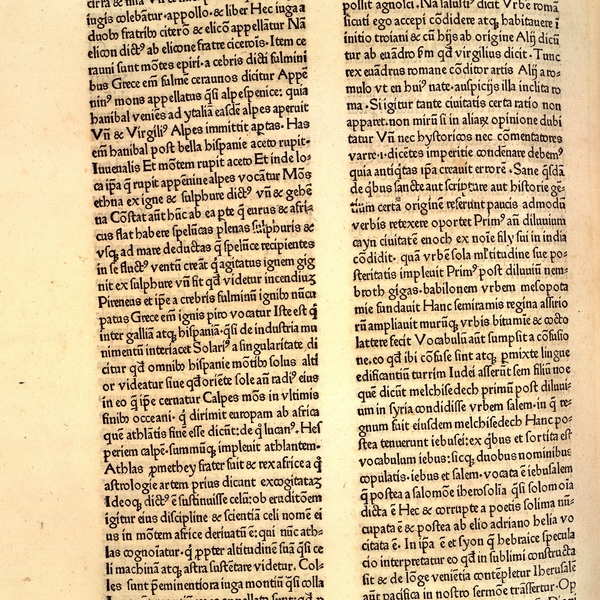 iugis colebãtur · appollo · & liber Hec iuga a
duobꝰ fratribꝰ citerõ & elicõ appellãtur Nã
elicon dictꝰ ab elicone fratre citerois · Item ce
rauni sunt mõtes epiri · a cebris dicti fulmini
bus Grece em̃ fulmẽ ceraunos dicitur Appẽ
ninꝰ mons appellatus q̃si alpes penice : quia
hanibal veniẽs ad ytaliã easdẽ alpes aperuit
Vñ & Virgiliꝰ Alpes immittit aptas · Has
em̃ hanibal post bella hispanie aceto rupit ·
Iuuenalis Et mõtem rupit aceto Et inde lo-
ca ip̃a q̃ rupit appenine alpes vocãtur Mõs
ethna ex igne & sulphure dictꝰ vñ & gehẽ
na Cõstat aũt hũc ab ea pte q̃ eurus & afri-
cus flat habere speluncas plenas sulphuris &
vsq̃ ad mare deductas q̃ spelũce recipientes
in se fluctꝰ ventũ creãt q̃ agitatus ignem gig
nit ex sulphure vñ fit qd̃ videtur incendiuꝫ
Pireneus et ip̃e a crebris fulminũ ignibꝰ nũcu
patus Grece em̃ ignis piro vocatur Iste est q̃
inter galliã atq̃ hispaniã · q̃si de industria mu
nimentũ interiacet Solariꝰ a singularitate di
citur qd̃ omnibꝰ hispanie mõtibꝰ solus alti
or videatur siue qd̃ oriẽte sole añ radiꝰ eius
in eo q̃ ip̃e cernatur Calpes mõs in vltimis
finibꝰ occeani · q̃ dirimit europam ab africa
quẽ athlãtis finẽ esse dicũt : de q̃ lucanꝰ · Hes
periem calpẽ · summũq̃ impleuit athlantem ·
Athlas ꝓmethey frater fuit & rex africe a q̃
astrologie artem prius dicunt excogitataꝫ
Ideoq̃ dictꝰ ẽ sustinuisse celũ : ob eruditõem
igitur eius discipline & scientiã celi nomẽ ei
us in mõtem africe deriuatũ ẽ : qui nũc ath-
las cognoĩatur · q̃ ꝓpter altitudinẽ suã q̃si ce
li machinã atq̃ astra sustẽtare videtur · Col-
les sunt p̃eminentiora iuga montiũ q̃si colla
pollit agnolci · Na salustiꝰ dicit Vrbẽ romã
sicuti ego accepi cõdidere atq̃ habitauere ĩ
initio troiani & cũ hijs ab origine Alij dicũ
tur ab euãdro sm̃ qd̃ virgilius dicit · Tunc
rex euãdrus romane cõditor artis Alij a ro-
mulo vt en huiꝰ nate · auspicijs illa inclita ro
ma · Si igitur tante ciuitatis certa ratio non
apparet · non mirũ si in aliarꝝ opinione dubi
tatur Vñ nec hystoricos nec cõmentatores
varie · i · dicẽtes imperitie condẽnare debemꝰ
quia antiqtas ip̃a creauit errorẽ · Sane q̃sdã
de q̃bus sancte aut scripture aut historie gẽ-
tium certã originẽ referunt paucis admodũ
verbis retexere oportet Primꝰ añ diluuium
cayn ciuitatẽ enoch ex noĩe filij sui in india
cõdidit · quã vrbẽ sola ml'titudine sue po-
steritatis impleuit Primꝰ post diluuiũ nem-
broth gigas · babilonem vrbẽm mesopota
mie fundauit Hanc semiramis regina assirio
rũ ampliauit murũq̃ vrbis bitumĩe & cocto
lattere fecit Vocabulũ aũt sumpsit a cõfusio
ne · eo qd̃ ibi cõfuse sint atq̃ pmixte lingue
edificantiũ turrim Iudei asserũt sem filiũ noe
quẽ dicũt melchisedech primũ post diluui-
um in syria condidisse vrbem salem · in q̃ re-
gnum fuit eiusdem melchisedech Hanc po-
stea tenuerunt iebusei : ex q̃bus et sortita est
vocabulum iebus : sicq̃ duobus nominibus
copulatis · iebus et salem · vocata ẽ ierusalem
q̃ postea a salomõe iherosolia q̃si solomoia
dicta ẽ Hec & corrupte a poetis solima nũ-
cupata ẽ & postea ab elio adriano helia vo
citata ẽ · In ip̃a ẽ et syon q̃ hebraice specula
tio interpretatur eo qd̃ in sublimi constructa
sit & de lõge veniẽtia contẽpletur Iherusalẽ
aũt pacifica in nostro sermõe trãsfertur · Op